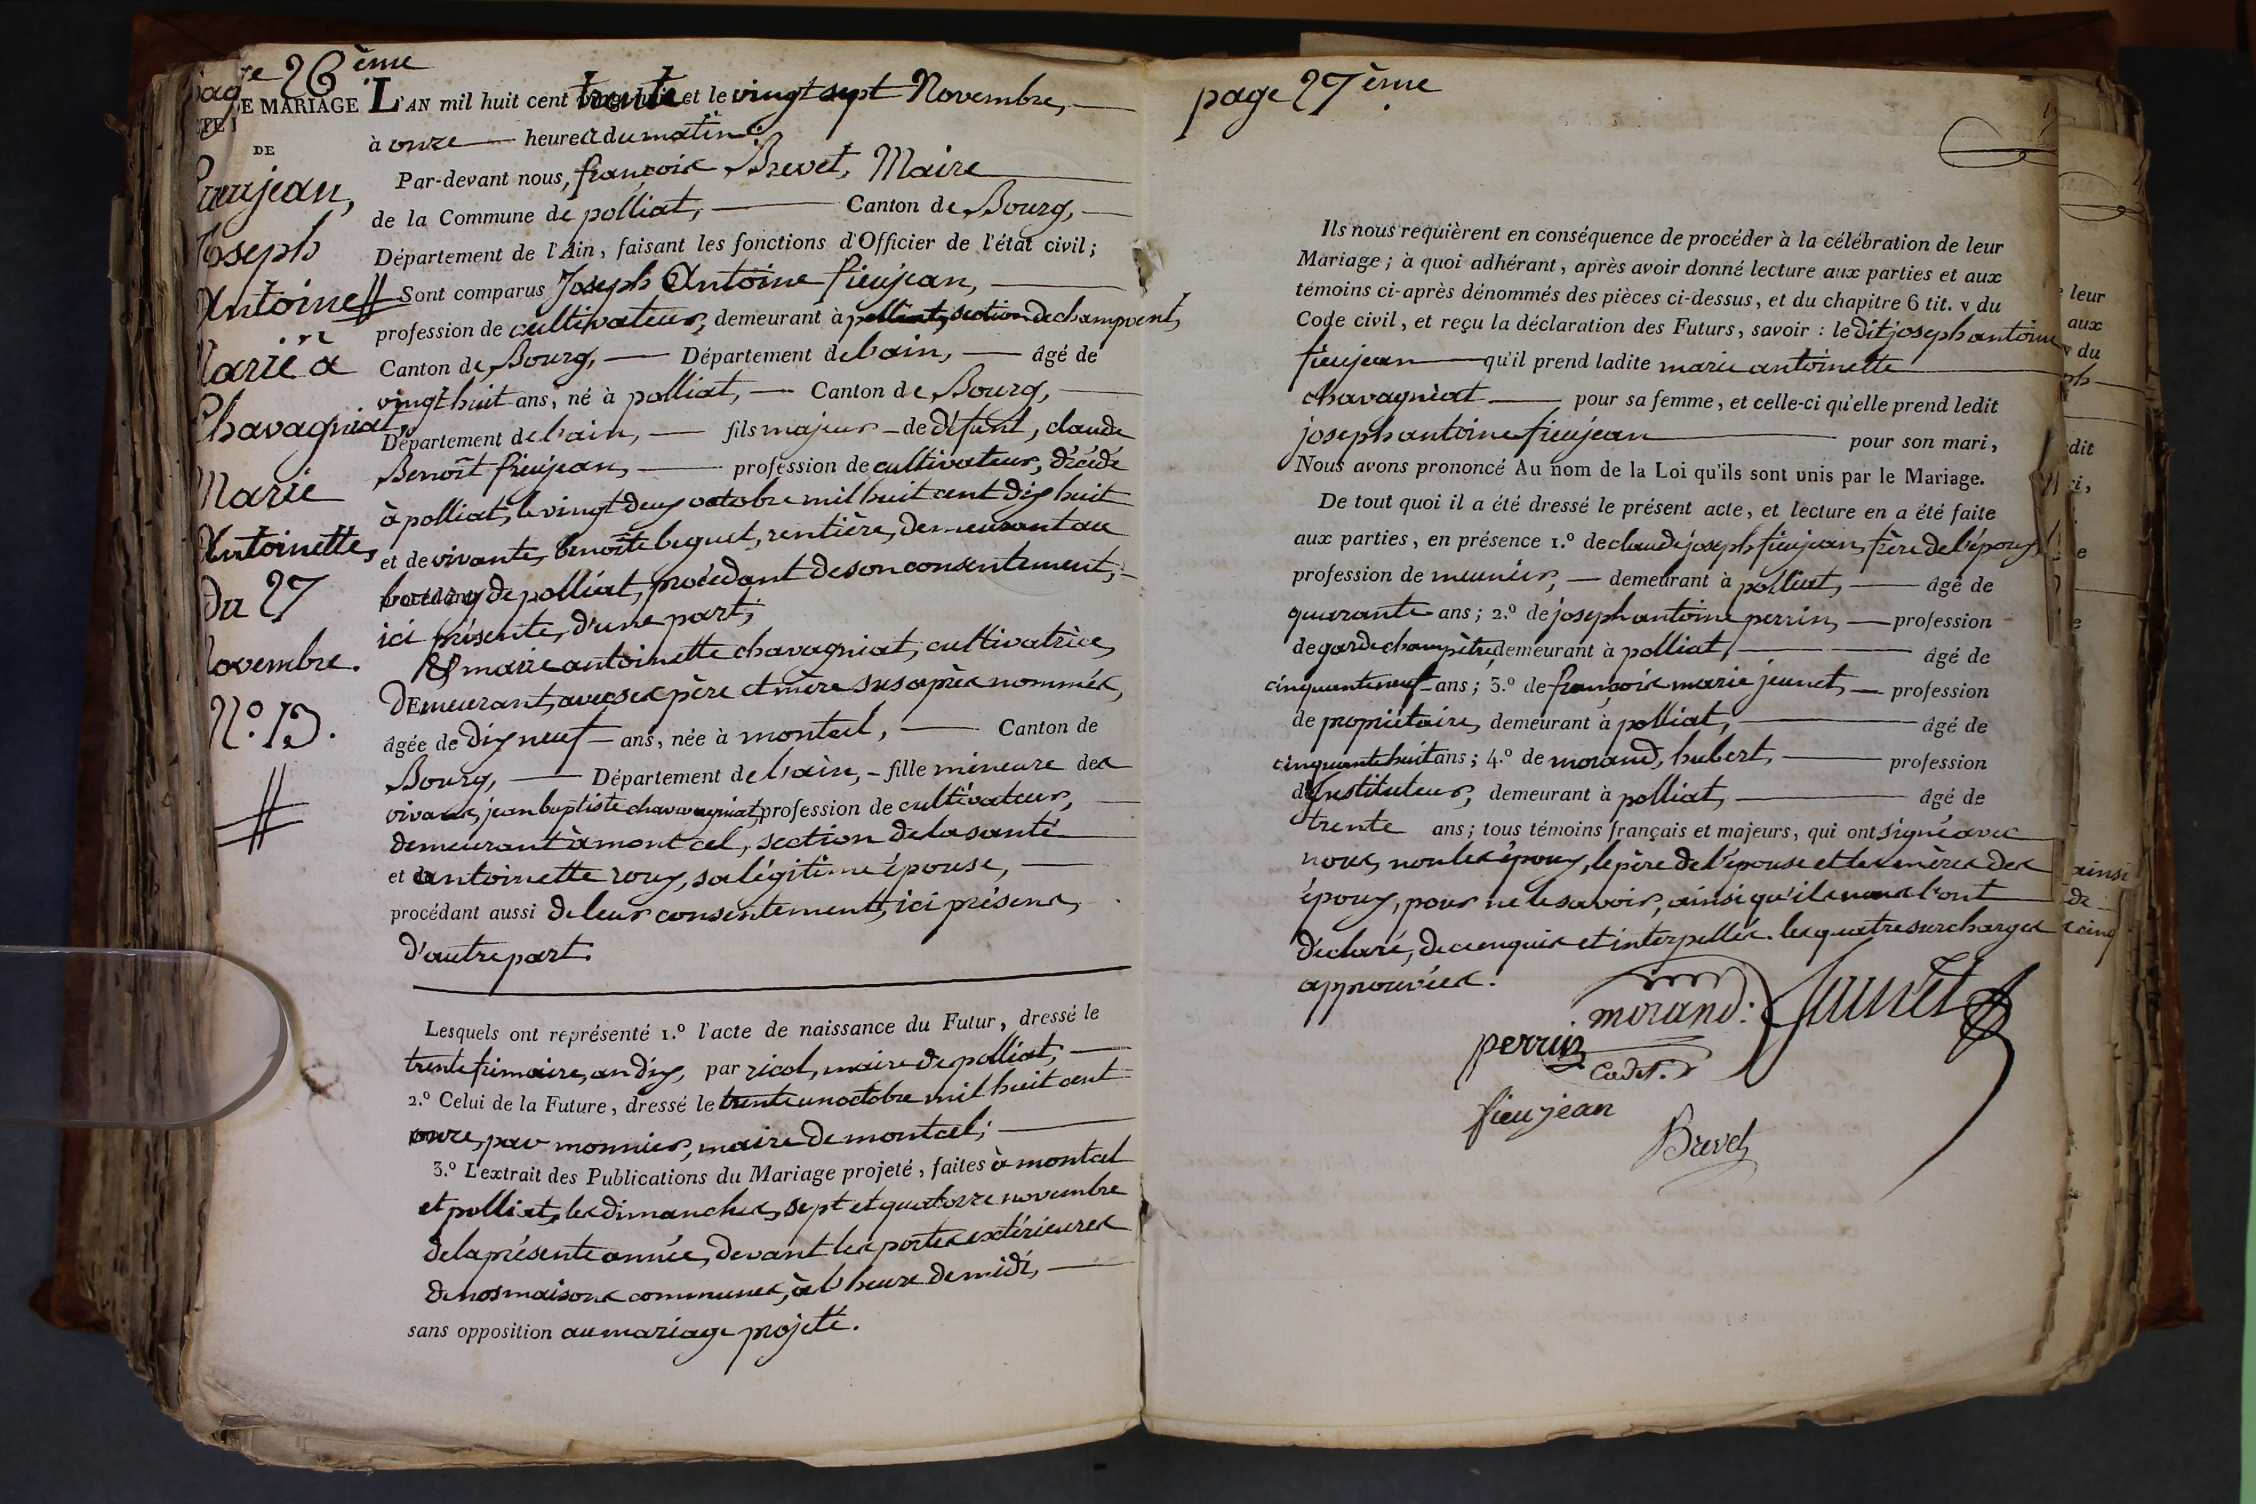 page 26ème
ACTE DE MARIAGE
DE
fieujean,
Joseph
Antoine
Marié à
Chavagniat,
Marie
Antoinette,
du 27
Novembre.
N.º 13.
L'AN mil huit cent trente et le vingt sept Novembre,
à onze heures du matin
Par-devant nous, françois Brevet, Maire
de la Commune de polliat, Canton de Bourg,
Département de l'Ain, faisant les fonctions d'Officier de l'état civil;
Sont comparus Joseph Antoine fieujean,
profession de cultivateur, demeurant à polliat, section de champvent,
Canton de Bourg, Département de l'ain, âgé de
vingt huit ans, né à polliat, Canton de Bourg,
Département de l'ain, fils majeur de défunt, claude
Benoît fieujean, profession de cultivateur, décédé
à polliat, le vingt deux octobre mil huit cent dix huit
et de vivante, benoîte beguet, rentière, demeurant au
bourg de polliat, procédant de son consentement,
ici présente, d'une part;
& marie antoinette chavagniat, cultivatrice,
Demeurant, avec ses père et mère sus après nommés,
âgée de dix neuf ans, née à montcel, Canton de
Bourg, Département de l'ain, fille mineure des
vivans, jean baptiste chavagniat, profession de cultivateur,
demeurant à montcel, section de la santé
et de antoinette roux, sa légitime épouse,
procédant aussi de leur consentement, ici présens,
d'autre part.
Lesquels ont représenté 1.º l'acte de naissance du Futur, dressé le
trente frimaire, an dix, par ricol, maire de polliat,
2.º Celui de la Future, dressé le trente un octobre mil huit cent
onze, par monnier, maire de montcel;
3.º L'extrait des Publications du Mariage projeté, faites à montcel
et polliat, les dimanches, sept et quatorze novembre
de la présente année, devant les portes extérieures
de nos maisons communes, à l'heure de midi,
sans opposition au mariage projeté.
page 27ème
Ils nous requièrent en conséquence de procéder à la célébration de leur
Mariage; à quoi adhérant, après avoir donné lecture aux parties et aux
témoins ci-après dénommés des pièces ci-dessus, et du chapitre 6 tit. v du
Code civil, et reçu la déclaration des Futurs, savoir : le dit joseph antoine
fieujean qu'il prend ladite marie antoinette
chavagniat pour sa femme, et celle-ci qu'elle prend ledit
joseph antoine fieujean pour son mari,
Nous avons prononcé Au nom de la Loi qu'ils sont unis par le Mariage.
De tout quoi il a été dressé le présent acte, et lecture en a été faite
aux parties, en présence 1.º de claude joseph fieujean, frère de l'époux,
profession de meunier, demeurant à polliat, âgé de
quarante ans; 2.º de joseph antoine perrin, profession
de garde champêtre, demeurant à polliat, âgé de
cinquante neuf ans; 3.º de françois marie jeunet, profession
de propriétaire, demeurant à polliat, âgé de
cinquante huit ans; 4.º de morand, hubert, profession
d'instituteur, demeurant à polliat, âgé de
trente ans; tous témoins français et majeurs, qui ont signé avec
nous, non les époux, le père de l'épouse et les mères des
époux, pour ne le savoir, ainsi qu'ils nous l'ont
déclaré, de ce enquis et interpellés. les quatre surcharges
approuvées.
morand. Jeunet
perrin
Cadet.
fieujean
Brevet
leur
aux
v du
dit
ainsi
de
cinq